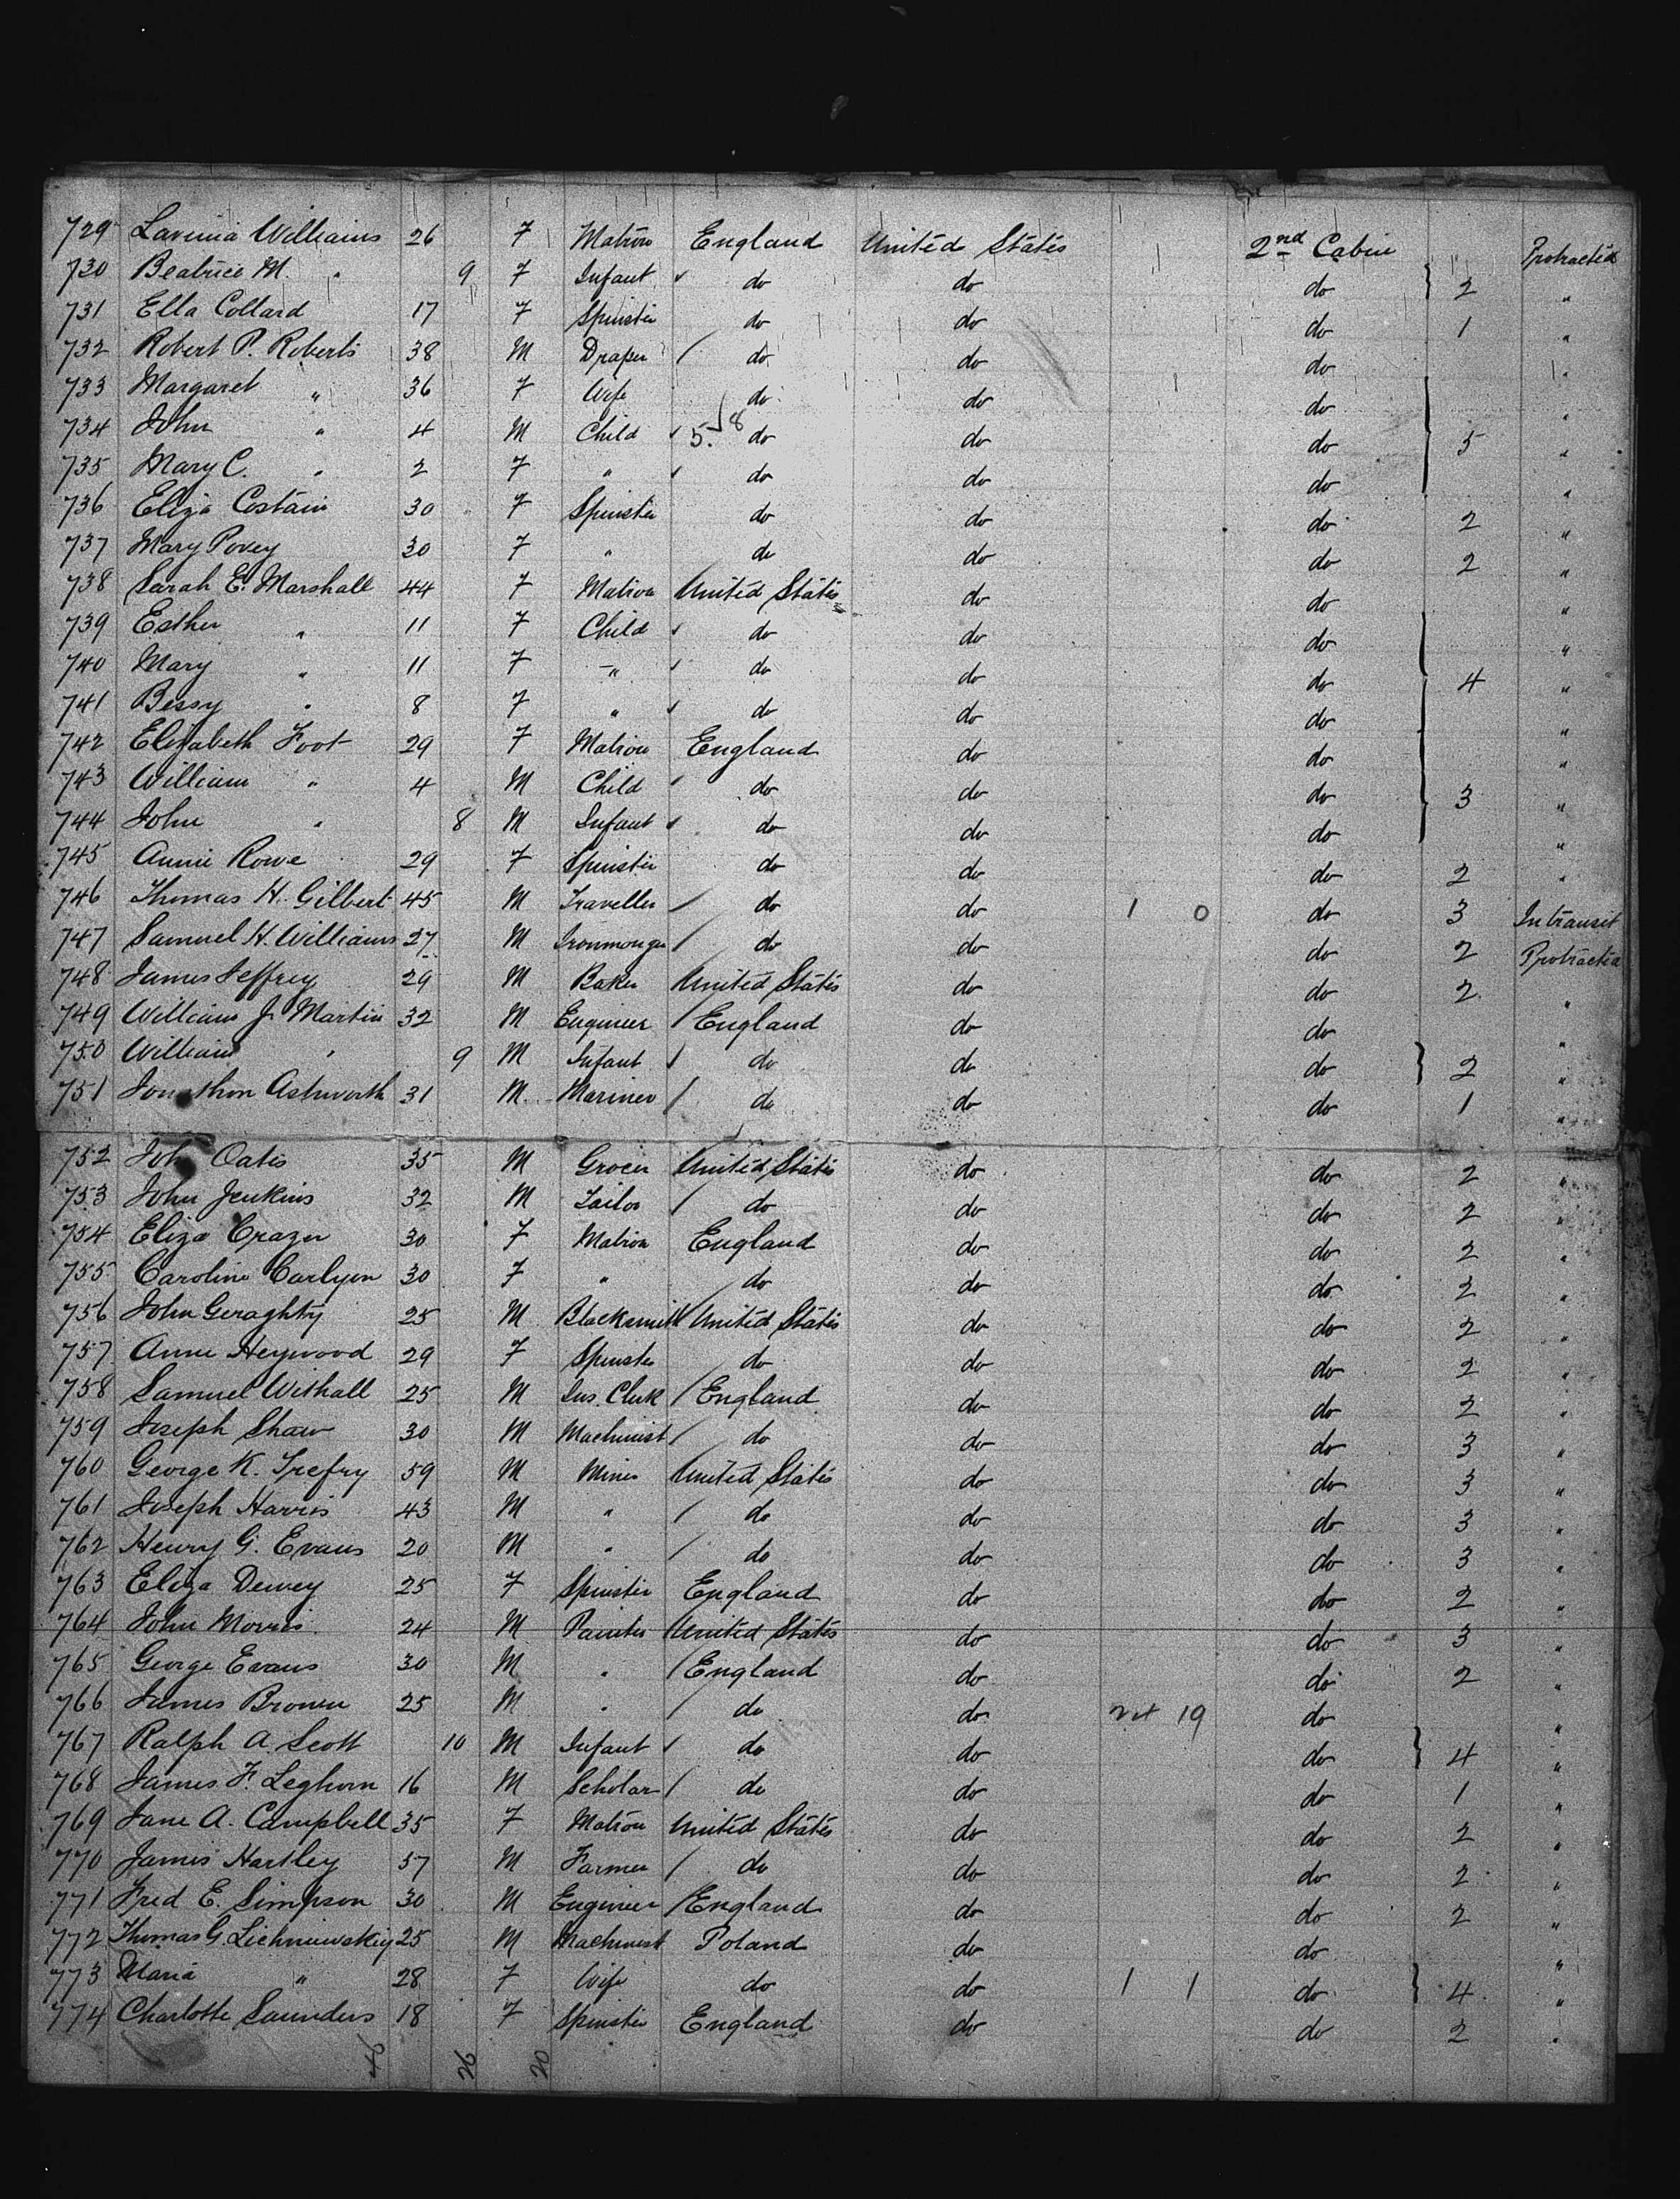 729 Lavinia Williams 26 F Matron England United States 2nd Cabin " Protracted
730 Beatrice M. " 9 F Infant ✓ do do do } 2 "
731 Ella Collard 17 F Spinster do do do 1 "
732 Robert P. Roberts 38 M Draper / do do do "
733 Margaret " 36 F Wife do do do "
734 John " 4 M Child ✓ 5.√8 do do do 5 "
735 Mary C. " 2 F " ✓ do do do "
736 Eliza Costain 30 F Spinster do do do 2 "
737 Mary Povey 30 F " do do do 2 "
738 Sarah E. Marshall 44 F Matron United States do do "
739 Esther " 11 F Child ✓ do do do "
740 Mary " 11 F " ✓ do do do 4 "
741 Bessy " 8 F " ✓ do do do "
742 Elizabeth Foot 29 F Matron England do do "
743 William " 4 M Child ✓ do do do 3 "
744 John " 8 M Infant ✓ do do do "
745 Annie Rowe 29 F Spinster do do do 2 "
746 Thomas H. Gilbert 45 M Traveller / do do 1 0 do 3 In transit
747 Samuel H. Williams 27 M Ironmonger / do do do 2 Protracted
748 James Jeffrey 29 M Baker United States do do 2 "
749 William J. Martin 32 M Engineer / England do do "
750 William " 9 M Infant ✓ do do do } 2 "
751 Jonathon Ashworth 31 M Mariner / do do do 1 "
752 John Oates 35 M Grocer United States do do 2 "
753 John Jenkins 32 M Tailor / do do do 2 "
754 Eliza Crazer 30 F Matron England do do 2 "
755 Caroline Carlyon 30 F " do do do 2 "
756 John Geraghty 25 M Blacksmith United States do do 2 "
757 Anne Heywood 29 F Spinster do do do 2 "
758 Samuel Withall 25 M Ins. Clerk / England do do 2 "
759 Joseph Shaw 30 M Machinist / do do do 3 "
760 George K. Trefry 59 M Miner United States do do 3 "
761 Joseph Harris 43 M " / do do do 3 "
762 Henry G. Evans 20 M " / do do do 3 "
763 Eliza Dewey 25 F Spinster England do do 2 "
764 John Morris 24 M Painter United States do do 3 "
765 George Evans 30 M " / England do do 2 "
766 James Brown 25 M " / do do 24 19 do "
767 Ralph A. Scott 10 M Infant ✓ do do do } 4 "
768 James F. Leghorn 16 M Scholar / do do do 1 "
769 Jane A. Campbell 35 F Matron United States do do 2 "
770 James Hartley 57 M Farmer / do do do 2 "
771 Fred E. Simpson 30 M Engineer / England do do 2 "
772 Thomas G. Lichniewskiy 25 M Machinist Poland do do "
773 Maria " 28 F Wife do do 1 1 do } 4 "
774 Charlotte Saunders 18 F Spinster England do do 2 "
26 20